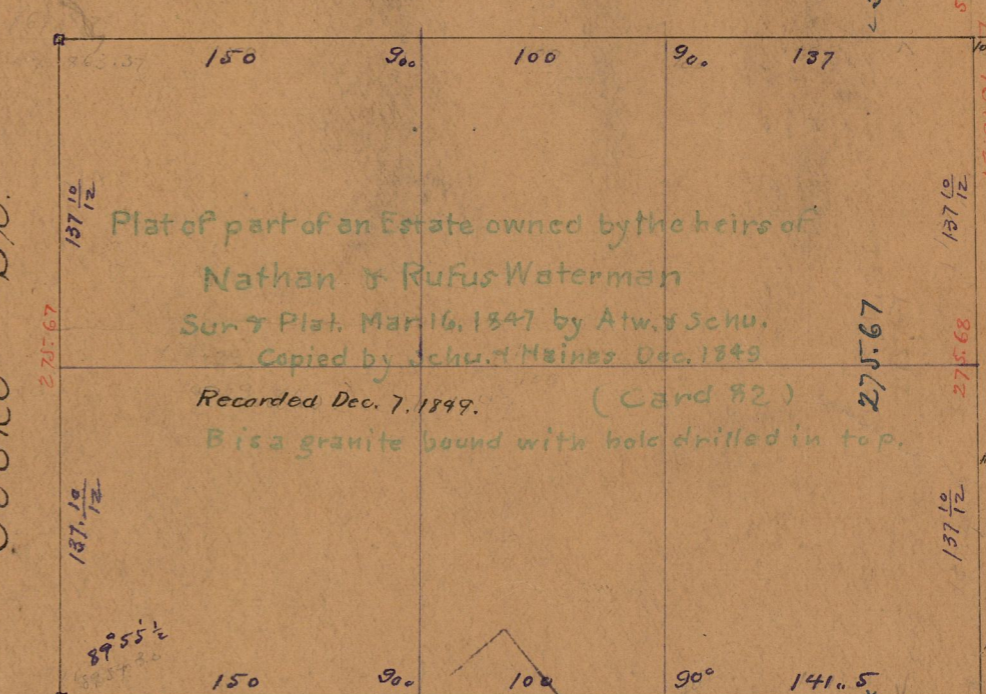 150 90° 100 90° 137
137 10/12
137 10/12
Plat of part of an Estate owned by the heirs of
Nathan & Rufus Waterman
Sur. & Plat. Mar. 16, 1847 by Atw. & Schu.
Copied by Schu. & Haines Dec. 1849
275.67
275.67
275.68
Recorded Dec. 7, 1849.
(Card 82)
B is a granite bound with hole drilled in top.
137. 10/12
137 10/12
89° 55' ½
150 90° 100 90° 141.. 5